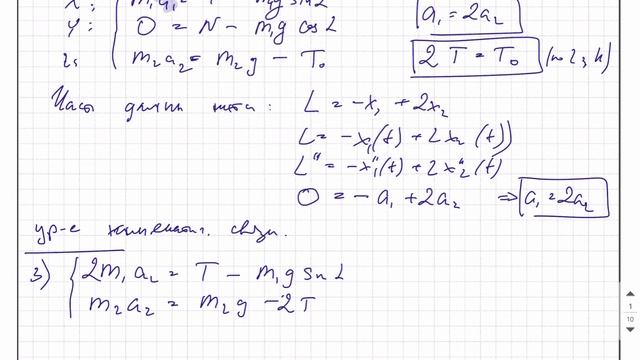 X: m₁a₁ = T - m₁g sin L
a₁ = 2a₂
Y: O = N - m₁g cos L
2: m₂a₂ = m₂g - T₀
2T = T₀ (по 2 з. Н)
Часть длины нити: L = -x₁ + 2x₂
L = -x₁(t) + 2x₂(t))
L" = -x₁"(t) + 2x₂"(t)
O = -a₁ + 2a₂ ⇒ a₁ = 2a₂
ур-е кинематич. связи.
3) 2m₁a₂ = T - m₁g sin L
m₂a₂ = m₂g - 2T
1
10